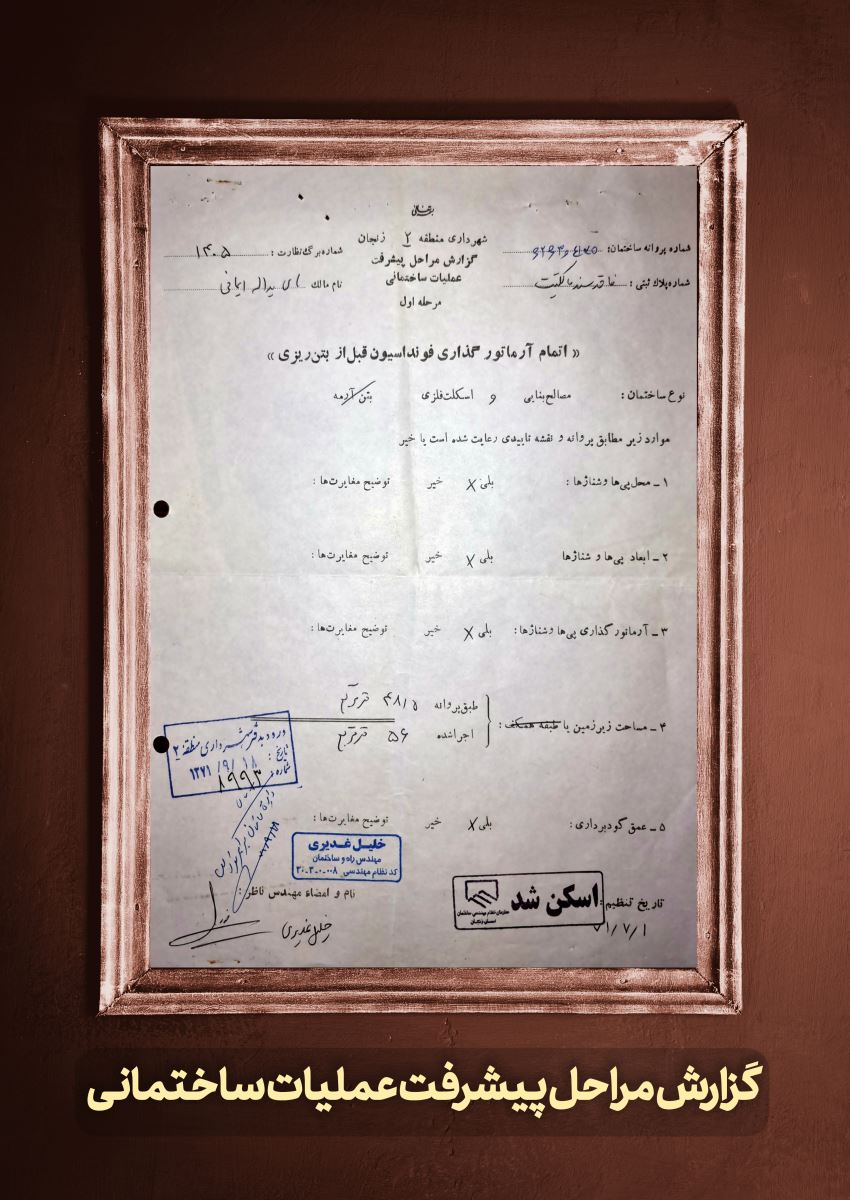 بسمه تعالی
شماره پروانه ساختمان:
شهرداری منطقه ۲ زنجان
شماره برگ نظارت: ۱۴۰۵
گزارش مراحل پیشرفت
عملیات ساختمانی
شماره پلاک ثبتی: فاقد سند مالکیت
نام مالک آقای یداله ایمانی
مرحله اول
« اتمام آرماتور گذاری فونداسیون قبل از بتن‌ریزی »
نوع ساختمان: مصالح بنایی و اسکلت فلزی بتن آرمه
موارد زیر مطابق پروانه و نقشه تاییدی رعایت شده است یا خیر
۱ ـ محل پی‌ها و شناژها: بلی X خیر توضیح مغایرت‌ها:
۲ ـ ابعاد پی‌ها و شناژها بلی X خیر توضیح مغایرت‌ها:
۳ ـ آرماتور گذاری پی‌ها و شناژها: بلی X خیر توضیح مغایرت‌ها:
۴ ـ مساحت زیرزمین یا طبقه همکف:
طبق پروانه ۴۸/۵ مترمربع
اجرا شده ۵۶ مترمربع
ورود به دفتر شهرداری منطقه ۲
تاریخ: ۱۸ /۹/ ۱۳۷۱
شماره: ۸۹۹۳
۵ ـ عمق گودبرداری: بلی X خیر توضیح مغایرت‌ها:
خلیل غدیری
مهندس راه و ساختمان
کد نظام مهندسی ۰۰۸-۳-۳۰
نام و امضاء مهندس ناظر:
خلیل غدیری
تاریخ تنظیم: ۷۱/۷/۱
اسکن شد
سازمان نظام مهندسی ساختمان
استان زنجان
گزارش مراحل پیشرفت عملیات ساختمانی